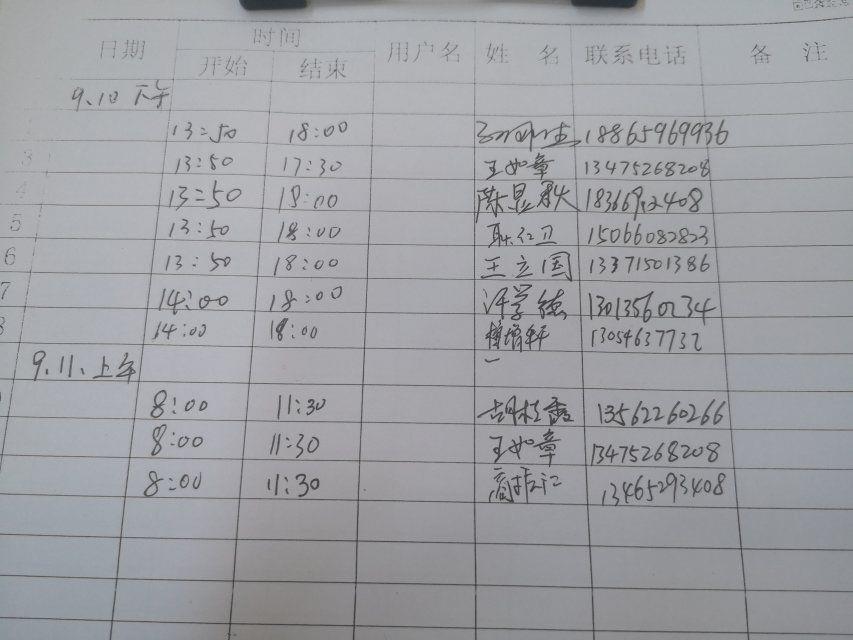 日期 时间 用户名 姓 名 联系电话 备 注
开始 结束
9.10 下午
13:50 18:00 18865969936
3 13:50 17:30 王如章 13475268208
4 13:50 18:00 陈显秋
5 13:50 18:00 耿红卫 15066082823
6 13:50 18:00 王立国 13371501386
7 14:00 18:00 许学德 13013560234
8 14:00 18:00 13054637732
9.11、上午
8:00 11:30 胡桂霞 13562260266
8:00 11:30 王如章 13475268208
8:00 11:30 13465293408